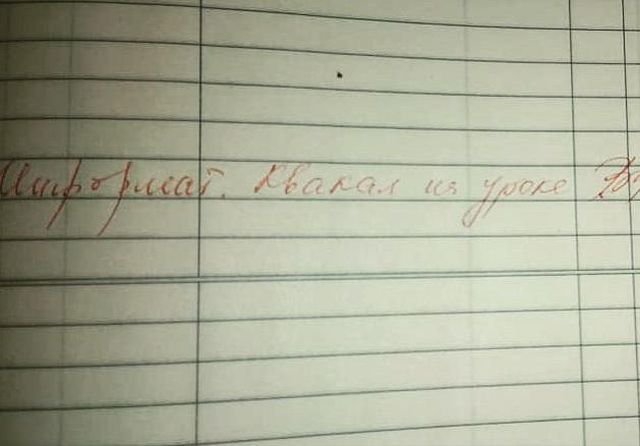 Информат. Квакал на уроке